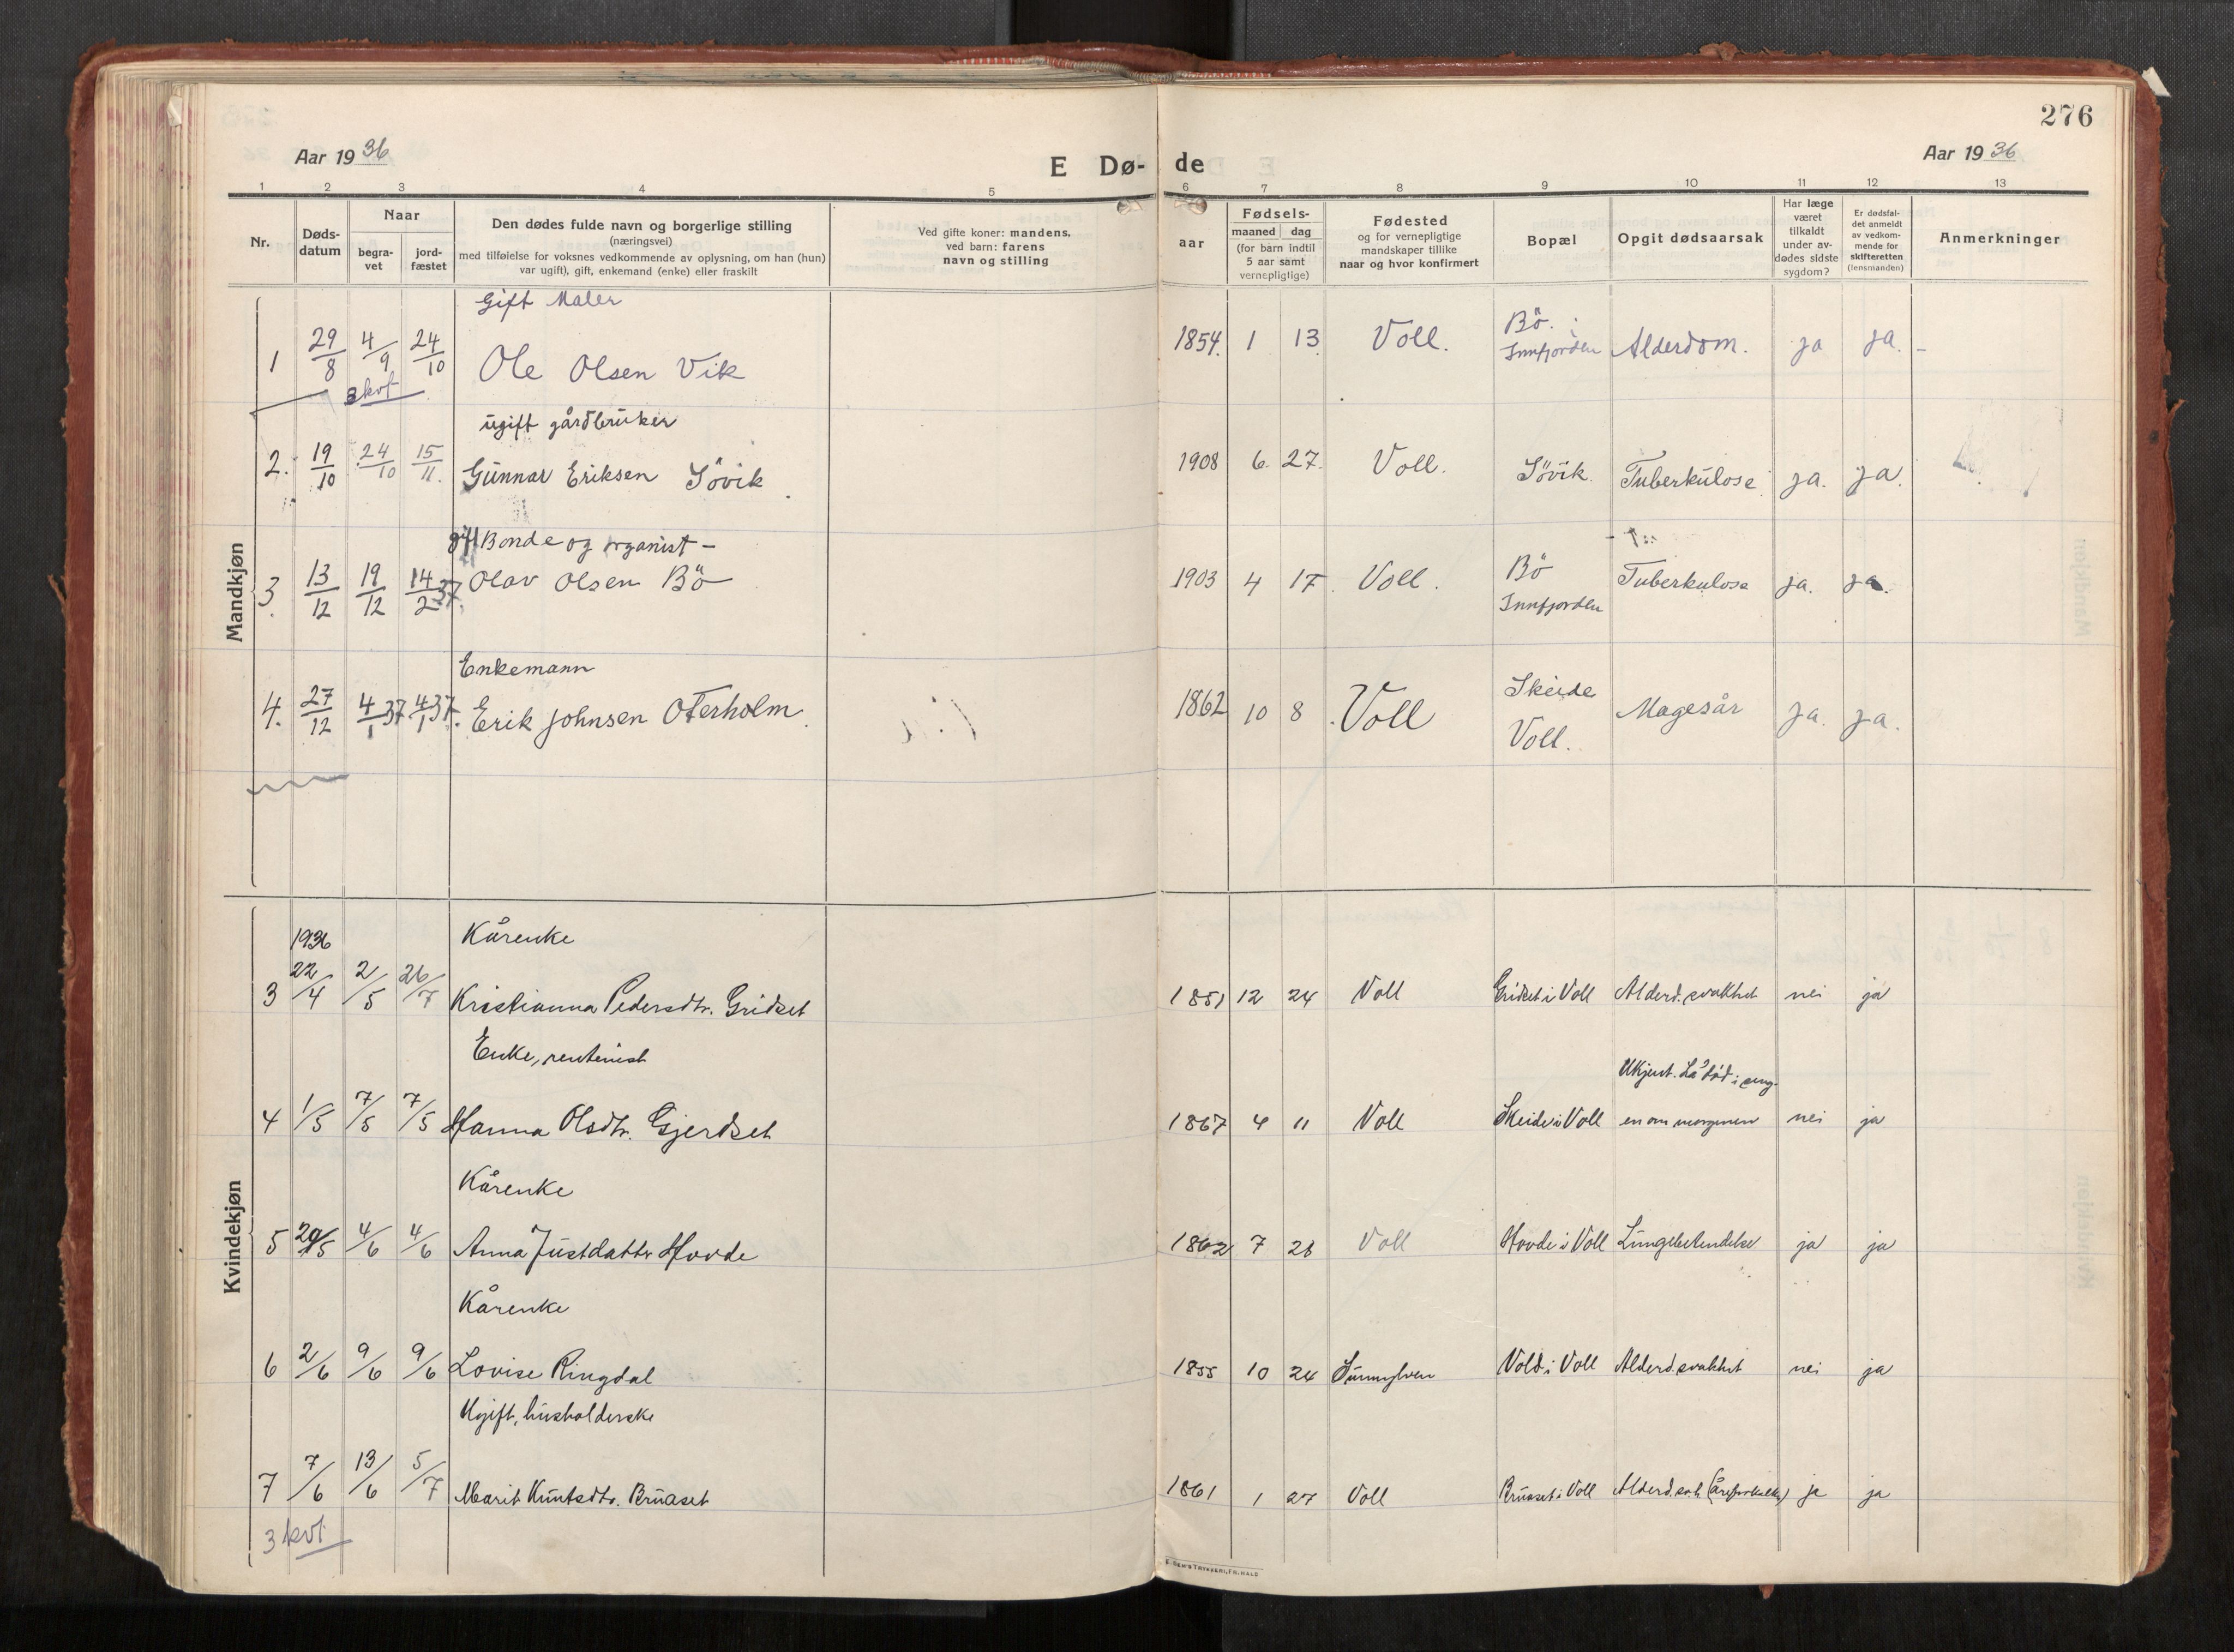 276
Aar 1936
Aar 1936
E Dø- de
1 2 3 4 5 6 7 8 9 10 11 12 13
Nr.
Døds-
datum
Naar
begra-
vet
jord-
fæstet
Den dødes fulde navn og borgerlige stilling
(næringsvei)
med tilføielse for voksnes vedkommende av oplysning, om han (hun)
var ugift), gift, enkemand (enke) eller fraskilt
Ved gifte koner: mandens,
ved barn: farens
navn og stilling
Fødsels-
aar
maaned dag
(for barn indtil
5 aar samt
vernepligtige)
Fødested
og for vernepligtige
mandskaper tillike
naar og hvor konfirmert
Bopæl
Opgit dødsaarsak
Har læge
været
tilkaldt
under av-
dødes sidste
sygdom?
Er dødsfal-
det anmeldt
av vedkom-
mende for
skifteretten
(lensmanden)
Anmerkninger
Mandkjøn
Gift Maler
1 29/8 4/9 24/10 Ole Olsen Vik 1854. 1 13 Voll. Bö. Innfjorden Alderdom. ja ja. –
3 kvt
ugift gårdbruker
2. 19/10 24/10 15/11. Gunnar Eriksen Sövik. 1908 6. 27. Voll. Sövik. Tuberkulose. ja. ja.
gift Bonde og organist –
3. 13/12 19/12 14/2 37. Olav Olsen Bö 1903 4 17. Voll. Bö Innfjorden Tuberkulose ja. ja.
Enkemann
4. 27/12 4/1 37 4/1 37. Erik Johnsen Oterholm. 1862 10 8. Voll Skeide Voll. Magesår ja. ja.
Kvindekjøn
1936 Kårenke
3 22/4 2/5 26/7 Kristianna Pedersdtr. Gridset 1851 12 24 Voll Gridset i Voll Alderd.svakhet nei ja
Enke, rentenist
4 1/5 7/5 7/5 Hanna Olsdtr. Gjerdset 1867 4 11 Voll Skeide i Voll Ukjent. Lå död i seng-
en om morgenen nei ja
Kårenke
5 29/5 4/6 4/6 Anna Justdatter Hovde 1862 7 28 Voll Hovde i Voll Lungebetendelse ja ja
Kårenke
6 2/6 9/6 9/6 Lovise Ringdal 1855 10 24 Sunnylven Vold i Voll Alderd.svakhet nei ja
Ugift, husholderske
7 7/6 13/6 5/7 Marit Knutsdtr. Bruaset 1861 1 27 Voll Bruaset i Voll Alderd.svh. ja ja
3 kvt